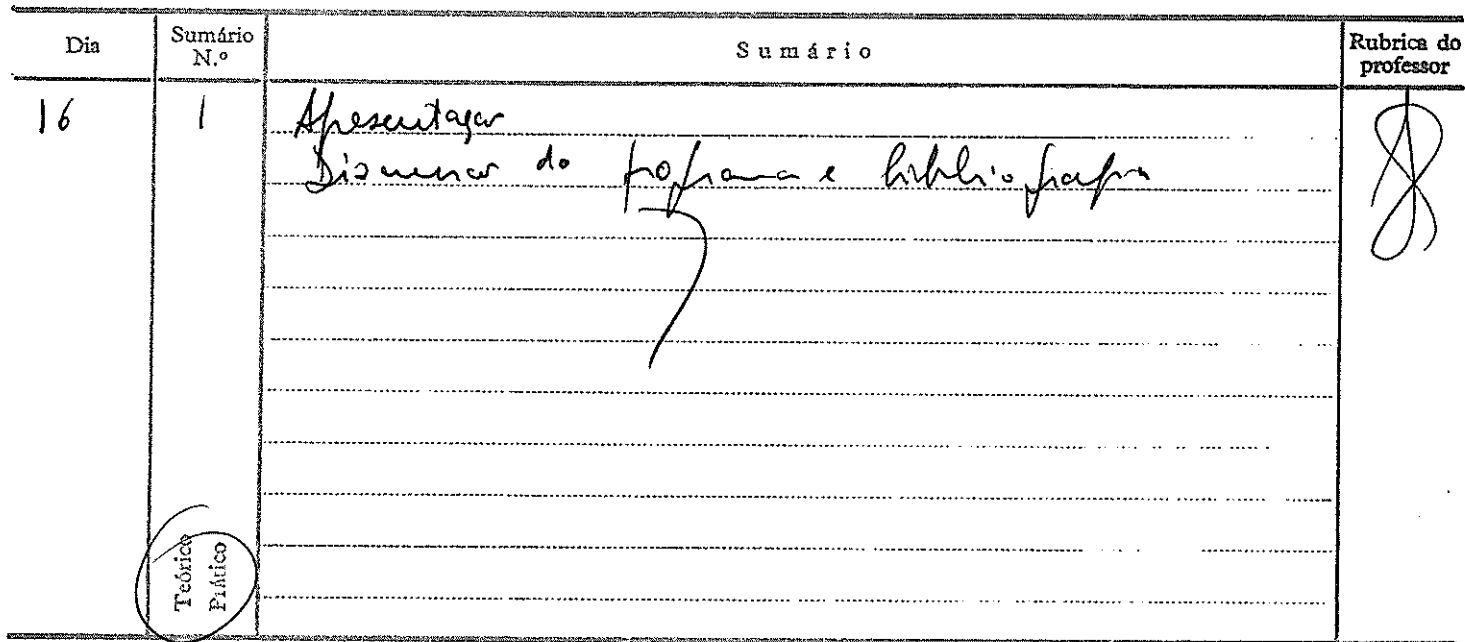 Dia
Sumário N.º
Sumário
Rubrica do professor
16
1
Apresentação
Discussão do programa e bibliografia
Teórico
Prático